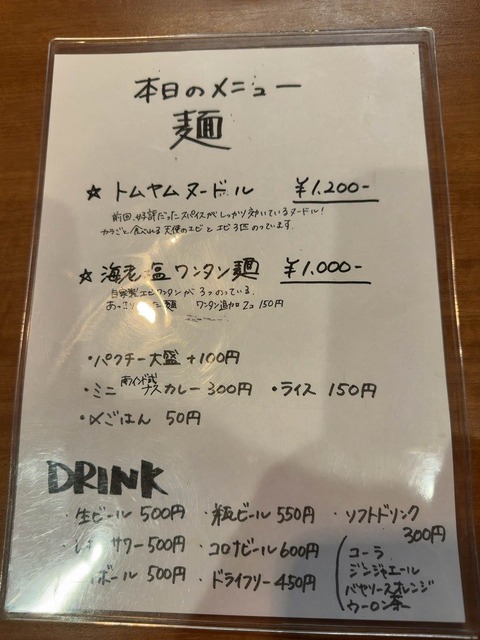 本日のメニュー
麺
☆ トムヤムヌードル ￥1.200-
前回、好評だったスパイスがしっかり効いているヌードル!
カラごと食べれる天使のエビとエビ3匹のっています。
☆ 海老塩ワンタン麺 ￥1.000-
自家製エビワンタンが3つのっている。
麺 ワンタン追加2コ 150円
・パクチー大盛 +100円
・ミニ 南インド式ナスカレー 300円 ・ライス 150円
・〆ごはん 50円
DRINK
・生ビール 500円 ・瓶ビール 550円 ・ソフトドリンク
300円
サワー 500円 ・コロナビール 600円 コーラ
ジンジャエール
ボール 500円 ・ドライフリー 450円 バヤリースオレンジ
ウーロン茶